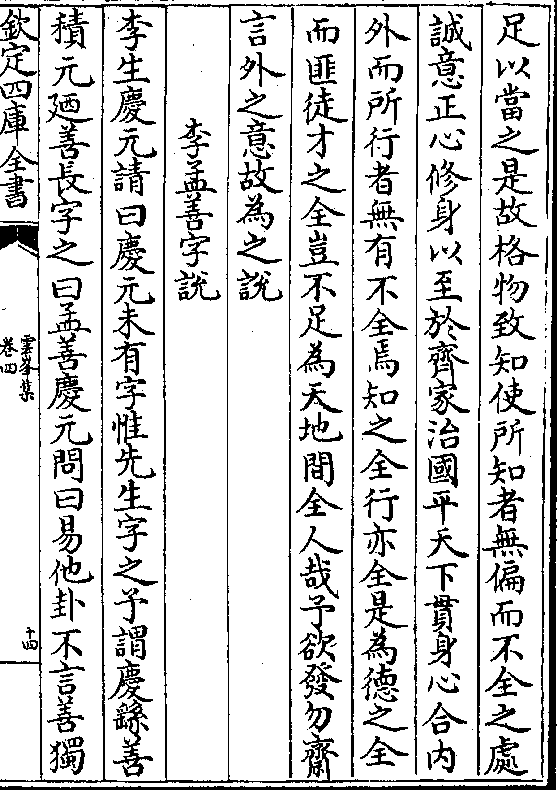 足以當之是故格物致知使所知者無偏而不全之處
誠意正心修身以至於齊家治國平天下貫身心合内
外而所行者無有不全焉知之全行亦全是為德之全
而匪徒才之全豈不足為天地間全人哉予欲發勿齋
言外之意故為之說
李孟善字說
李生慶元請曰慶元未有字惟先生字之予謂慶繇善
積元廼善長字之曰孟善慶元問曰易他卦不言善獨
欽定四庫全書
雲峯集
卷四
十四